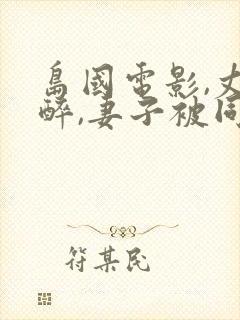 島國電影,丈
醉,妻子被同
符某民